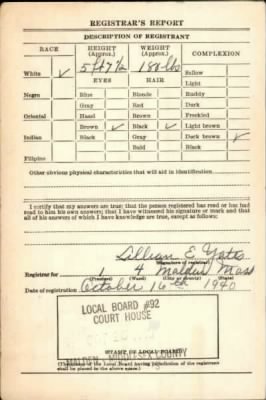 REGISTRAR'S REPORT
DESCRIPTION OF REGISTRANT
RACE HEIGHT (Approx.) WEIGHT (Approx.) COMPLEXION
White ✓ 5 ft 7 1/2 180 lbs Sallow
EYES HAIR Light
Negro Blue Blonde Ruddy
Gray Red Dark
Oriental Hazel Brown Freckled
Brown ✓ Black ✓ Light brown
Indian Black Gray Dark brown ✓
Bald Black
Filipino
Other obvious physical characteristics that will aid in identification
I certify that my answers are true; that the person registered has read or has had
read to him his own answers; that I have witnessed his signature or mark and that
all of his answers of which I have knowledge are true, except as follows:
Lillian E. Yates
(Signature of registrar)
Registrar for 1 4 Malden Mass
(Precinct) (Ward) (City or county) (State)
Date of registration October 16th 1940
LOCAL BOARD #92
COURT HOUSE
MALDEN, MIDDLESEX COUNTY
(STAMP OF LOCAL BOARD)
(The stamp of the Local Board having jurisdiction of the registrant
shall be placed in the above space.)